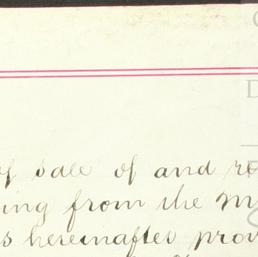 of sale of and re
ing from the M
s hereinafter prov